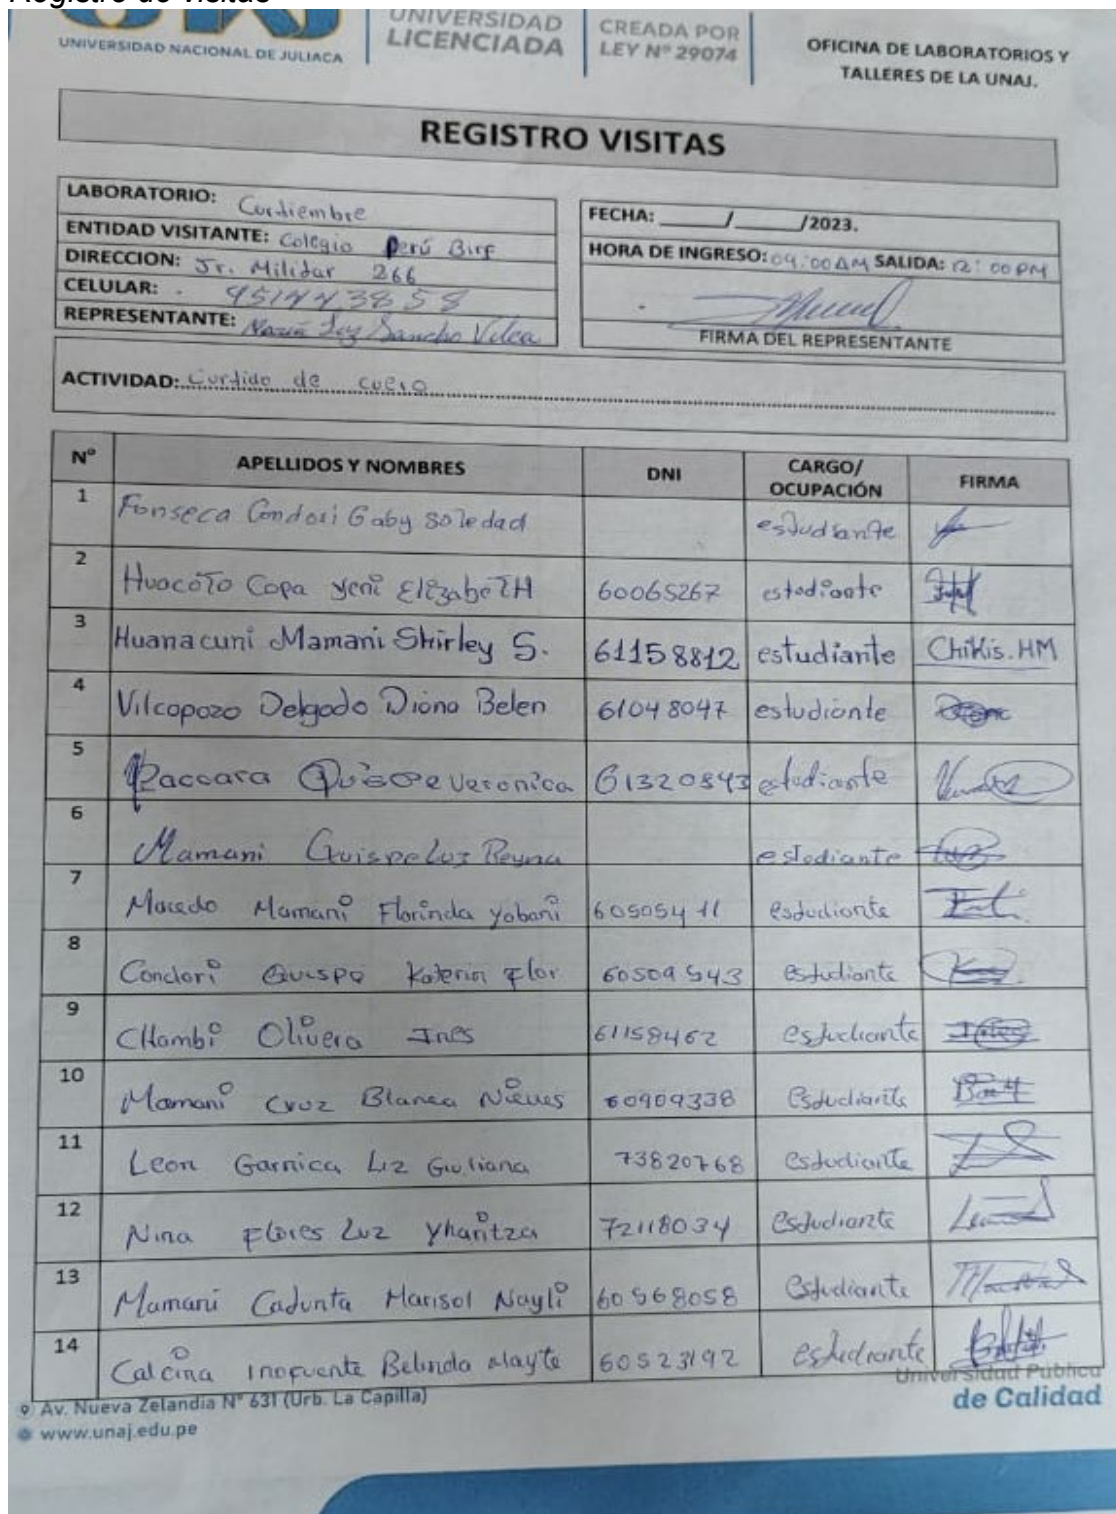 Registro de visitas
UNIVERSIDAD NACIONAL DE JULIACA
UNIVERSIDAD
LICENCIADA
CREADA POR
LEY Nº 29074
OFICINA DE LABORATORIOS Y
TALLERES DE LA UNAJ.
REGISTRO VISITAS
LABORATORIO: Curtiembre
ENTIDAD VISITANTE: Colegio Perú Birf
DIRECCION: Jr. Militar 266
CELULAR: 951443858
REPRESENTANTE: María Luz Sancho Vilca
FECHA: ______/______/2023.
HORA DE INGRESO: 09:00 AM SALIDA: 12:00 PM
FIRMA DEL REPRESENTANTE
ACTIVIDAD: Curtido de cuero
Nº APELLIDOS Y NOMBRES DNI CARGO/ OCUPACIÓN FIRMA
1 Fonseca Condori Gaby Soledad estudiante
2 Huacoto Copa Yeni ElizabeTH 60065267 estudiante
3 Huanacuni Mamani Shirley S. 61158812 estudiante Chikis.HM
4 Vilcapazo Delgado Diana Belen 61048047 estudiante
5 Paccara Quispe Veronica 61320843 estudiante
6 Mamani Quispe Luz Reyna estudiante
7 Macedo Mamani Florinda Yobani 60505411 estudiante
8 Condori Quispe Katerin Flor 60509543 estudiante
9 CHambi Olivera Ines 61158462 estudiante
10 Mamani Cruz Blanca Nieves 60909338 Estudiante
11 Leon Garnica Liz Giuliana 73820768 Estudiante
12 Nina Flores Luz Yharitza 72118034 Estudiante
13 Mamani Cadunta Marisol Nayli 60568058 Estudiante
14 Calcina Inofuente Belinda Mayte 60523192 estudiante
Av. Nueva Zelandia N° 631 (Urb. La Capilla)
www.unaj.edu.pe
Universidad Pública
de Calidad